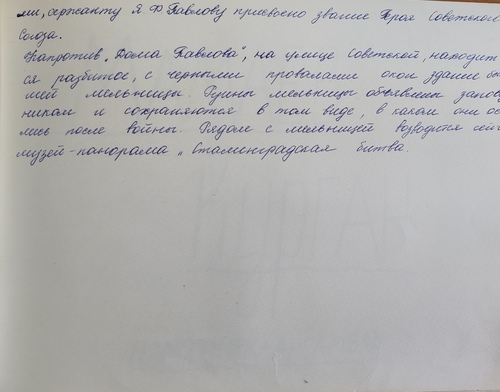 ми, сержанту Я. Ф. Павлову присвоено звание Героя Советского
Союза.
Напротив „Дома Павлова", на улице Советской, находит
ся разбитое, с черными провалами окон здание бы
шей мельницы. Руины мельницы объявлены запов
ником и сохраняются в том виде, в каком они ос
лись после войны. Рядом с мельницей возводится сей
музей-панорама „Сталинградская битва.